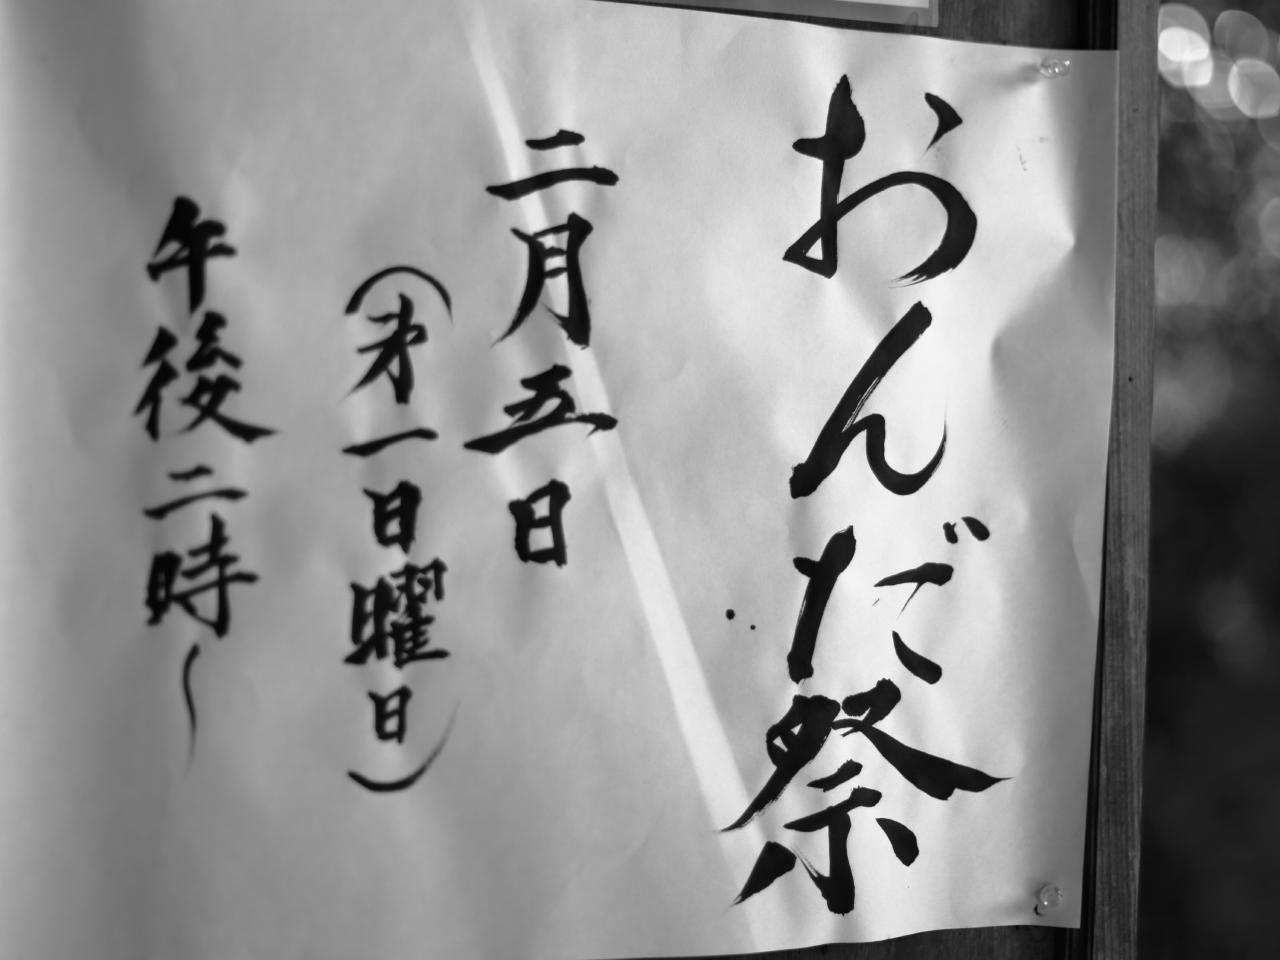 おんだ祭
二月五日
（第一日曜日）
午後二時〜